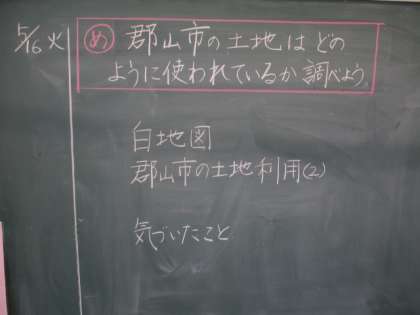 5/16 火
め 郡山市の土地はどの
ように使われているか調べよう。
白地図
郡山市の土地利用(2)
気づいたこと